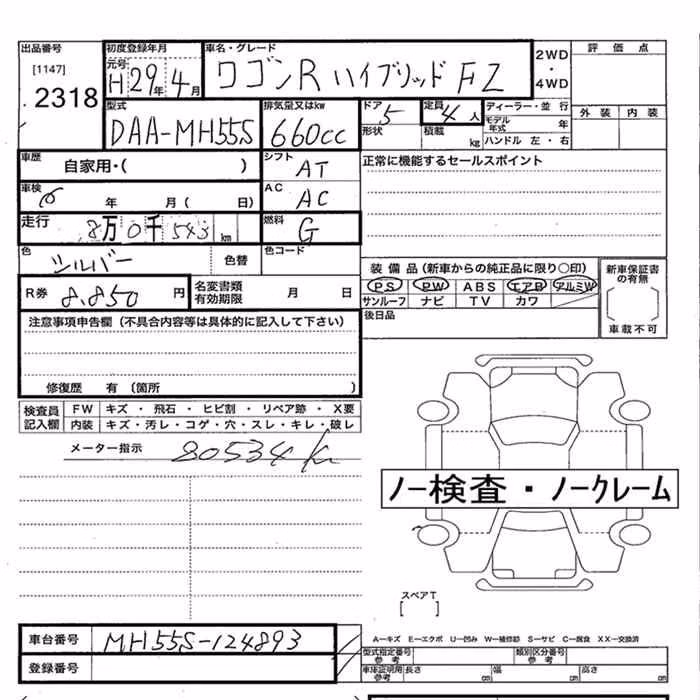 出品番号 初度登録年月 車名・グレード 2WD ・ 4WD 評価点
[1147] 元号 H 29年 4月 ワゴンR ハイブリッド FZ
2318 外装 内装
型式 排気量又はkw ドア 5 定員 4人 ディーラー・並行
DAA-MH55S 660cc 形状 積載 kg モデル年式 年
ハンドル 左・右
車歴 自家用・( ) シフト AT 正常に機能するセールスポイント
車検 年 月( 日) AC AC
走行 8万 0千 543 km 燃料 G
色 シルバー 色替 色コード
装備品(新車からの純正品に限り○印) 新車保証書の有無
R券 8,850 円 名変書類有効期限 月 日 PS PW ABS エアB アルミW
サンルーフ ナビ TV カワ
注意事項申告欄(不具合内容等は具体的に記入して下さい) 後日品 車載不可
修復歴 有(箇所 )
検査員記入欄 FW キズ・飛石・ヒビ割・リペア跡・X要
内装 キズ・汚レ・コゲ・穴・スレ・キレ・破レ
メーター指示 80534 km
ノー検査・ノークレーム
スペアT
[ ]
車台番号 MH55S-124893 A−キズ E−エクボ U−凹み W−補修跡 S−サビ C−腐食 XX−交換済
登録番号 型式指定番号 参考 類別区分番号 参考
車庫証明用参考 長さ cm 幅 cm 高さ cm